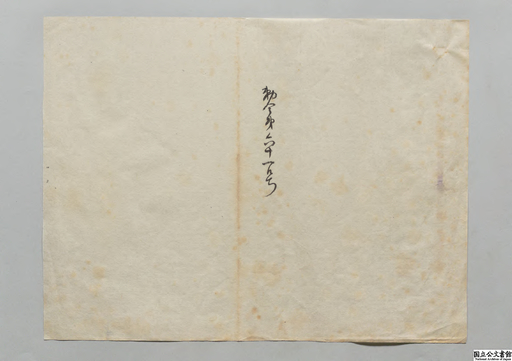 勅令第六十一号
国立公文書館
National Archives of Japan